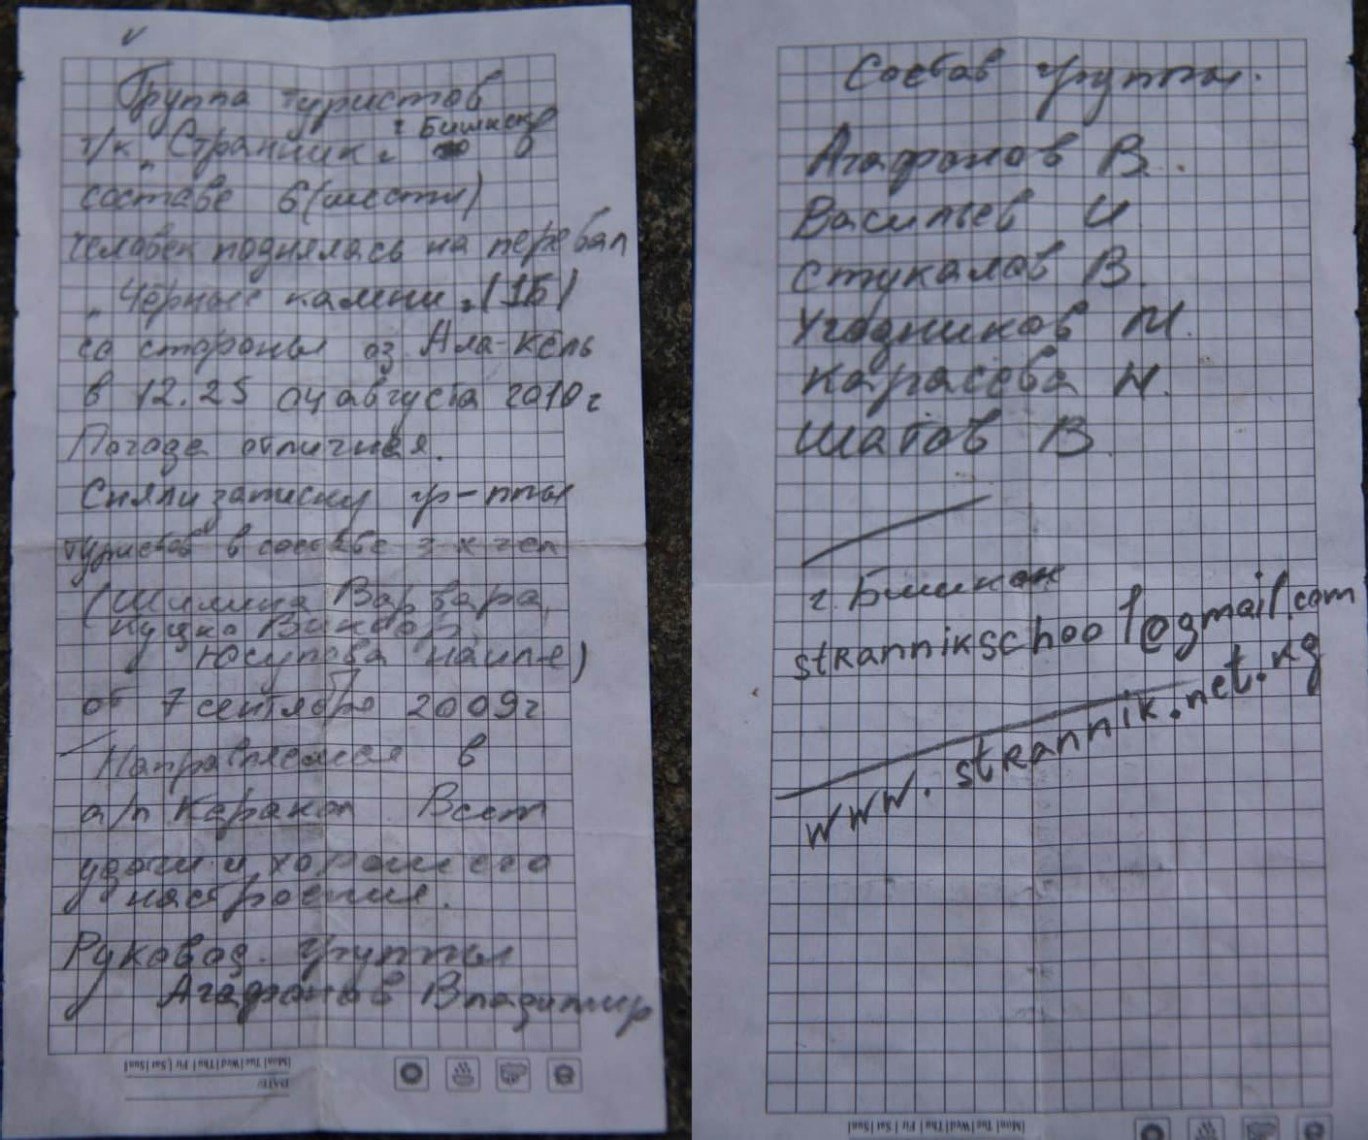 Группа туристов
т/к „Странник" г Бишкек в
составе 6 (шести)
человек поднялась на перевал
„Чёрные камни" (1Б)
со стороны оз Ала-Кёль
в 12.25 04 августа 2010 г
Погода отличная.
Сняли записку гр-ппы
туристов в составе 3-х чел
(Шилина Варвара,
Виктор,
Юсупова)
от 7 сентября 2009 г
Направляемся в
а/л Каракол Всем
удачи и хорошего
настроения.
Руковод. группы
Агафонов Владимир
|Mon| Tue |Wed|Thu | Fri | Sat |Sun|
DATE:
Состав группы.
Агафонов В.
Васильев И
Стукалов В.
Угодников М.
Карасёва Н.
Шатов В
г. Бишкек
strannikschool@gmail.com
www.strannik.net.kg
|Mon| Tue |Wed|Thu | Fri | Sat |Sun|